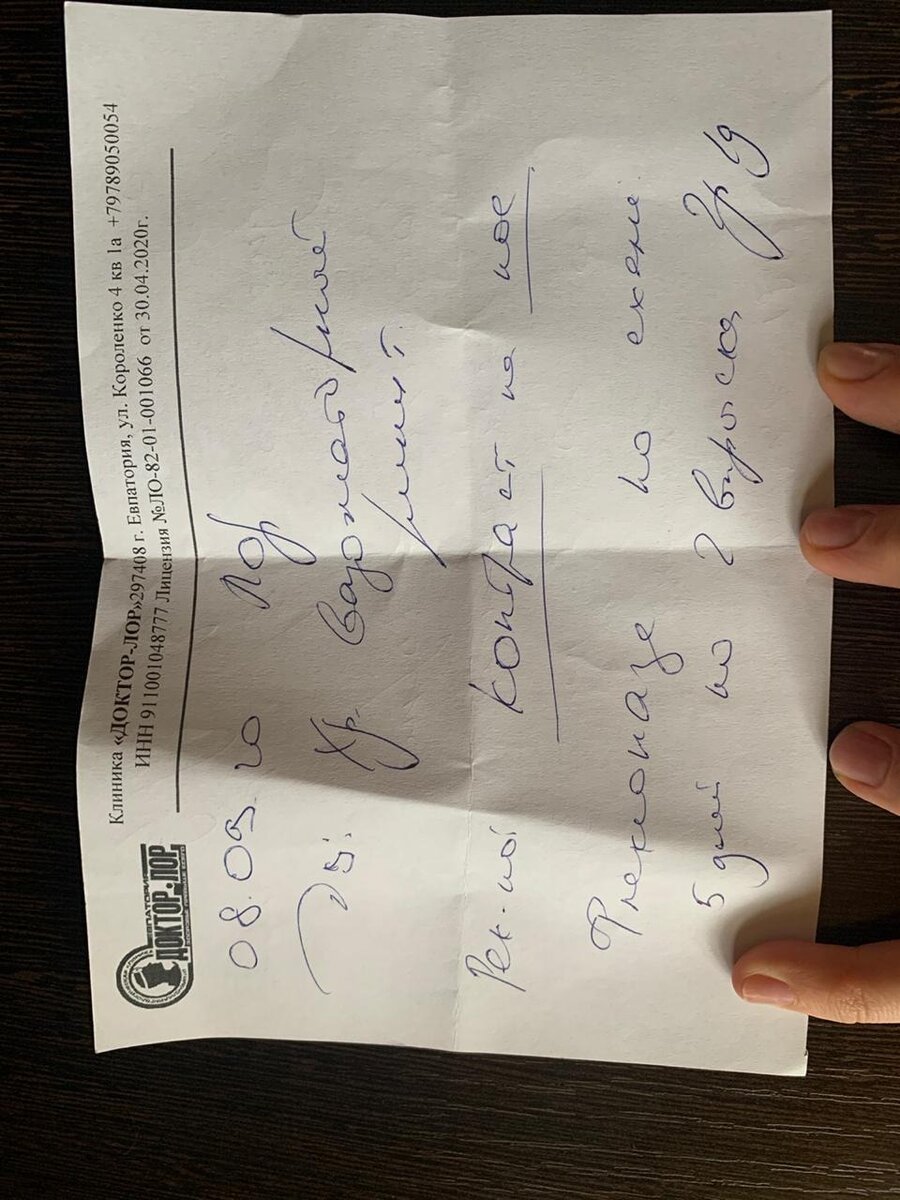 Клиника «ДОКТОР-ЛОР»297408 г. Евпатория, ул. Короленко 4 кв 1а +79789050054
ИНН 911001048777 Лицензия №ЛО-82-01-001066 от 30.04.2020г.
ЕВПАТОРИЯ
ДОКТОР-ЛОР
08.09.20 Лор
Ds: Хр. вазомоторный
ринит.
Рек-но: контраст на нос
по схеме
5 дней по 2 впрыска 2р д